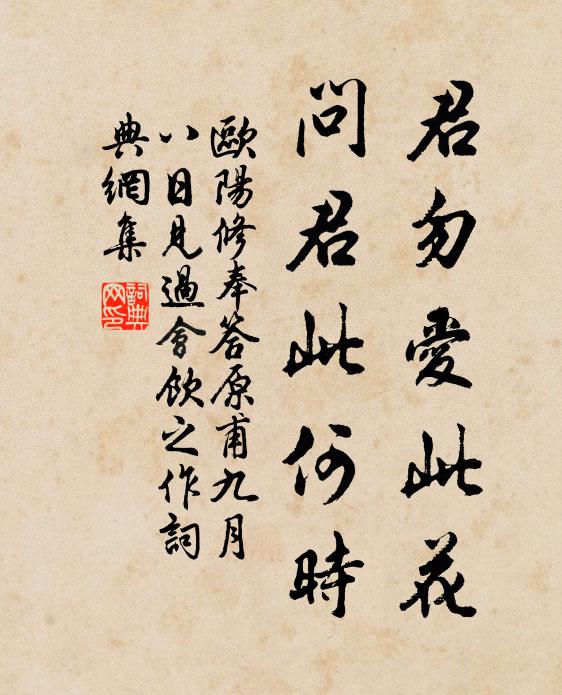 君勿愛此花
問君此何時
歐陽修奉答原甫九月
八日見過會飲之作詞
典網集
詞典网印